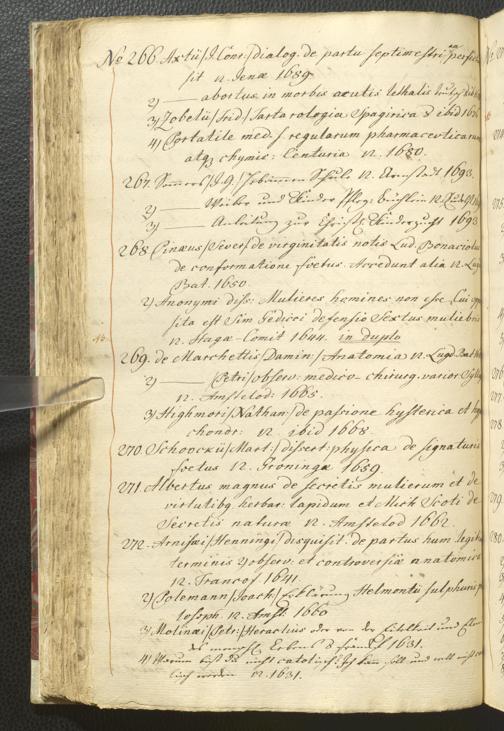 No 266. Axtii/J. Conr:/dialog. de partu septimestri
sit 12. Jenæ 1689
2) — abortus in morbis acutis lethalis
3) Zobelii/Frid/Tartarologia Spagirica 8 ibid
4) Portatile med. s. regularum pharmacevticarum
atq chymic: Centuria 12. 1680.
267. J. G. 12. Arnstadt 1693.
2) — Weiber und Kinder Pfleg: Büchlein 12.
3) — Anleitung zur Kinderzucht 1693
268. Pinæus/Sever/de virginitatis notis Lud. Bonaciolus
de conformatione foetus. Accedunt alia 12. Lugd
Bat. 1650.
2) Anonymi diss: Mulieres homines non esse. Cui oppo
sita est Sim Gedicci defensio Sexus muliebris
12. Hagæ-Comit 1644. in duplo
269. de Marchettis/Damin:/Anatomia 12. Lugd. Bat
2) — /Petri/observ: medico-chirurg. varior. Syll
12. Amstelod: 1665.
3) Highmori/Nathan:/de passione hysterica et hy
chondr: 12. ibid 1668.
270. Schoockii/Mart:/dissert: physica de signaturis
foetus 12. Groningæ 1659.
271. Albertus magnus de secretis mulierum et de
virtutibq herbar: lapidum et Mich Scoti de
Secretis naturæ 12. Amstelod 1662.
272. Arnisæi/Henningi/disquisit: de partus hum. legitim
terminis et controversiæ anatomicæ
12. Francof 1641
2) Polemann/Joach:/Erklärung Helmontii sulphuris p
losoph. 12. Amst: 1660
3) Molinæi/Petri/Heraclius oder von der Eitelkeit und
des menschl. Lebens 8 1631.
4) Warum bist du nicht catolisch: Ich kan soll und will nicht
12. 1631.